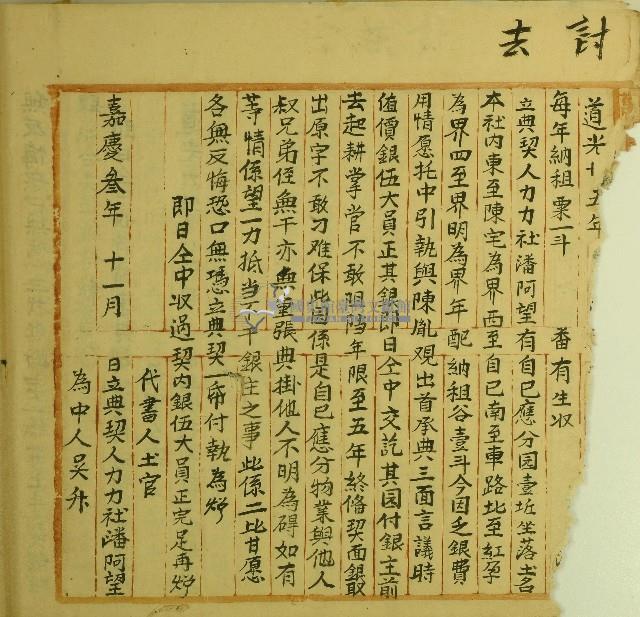 討去
道光十五年
每年納租粟一斗 番有生收
立典契人力力社潘阿望有自己應分园壹坵坐落土名
本社内東至陳宅為界西至自己南至車路北至紅孕
為界四至界明為界年配納租谷壹斗今因乏銀費
用情愿托中引執與陳胤观出首承典三面言議時
值價銀伍大員正其銀即日仝中交訖其园付銀主前
去起耕掌管不敢阻擋年限至五年終俻契面銀取
出原字不敢刁难保此园係是自己應分物業與他人
叔兄弟侄無干亦無重張典掛他人不明為碍如有
等情係望一力抵当不干銀主之事此係二比甘愿
各無反悔恐口無憑立典契一帋付執為炤
即日仝中收過契内銀伍大員正完足再炤
代書人土官
嘉慶叁年 十一月 日立典契人力力社潘阿望
為中人吳升